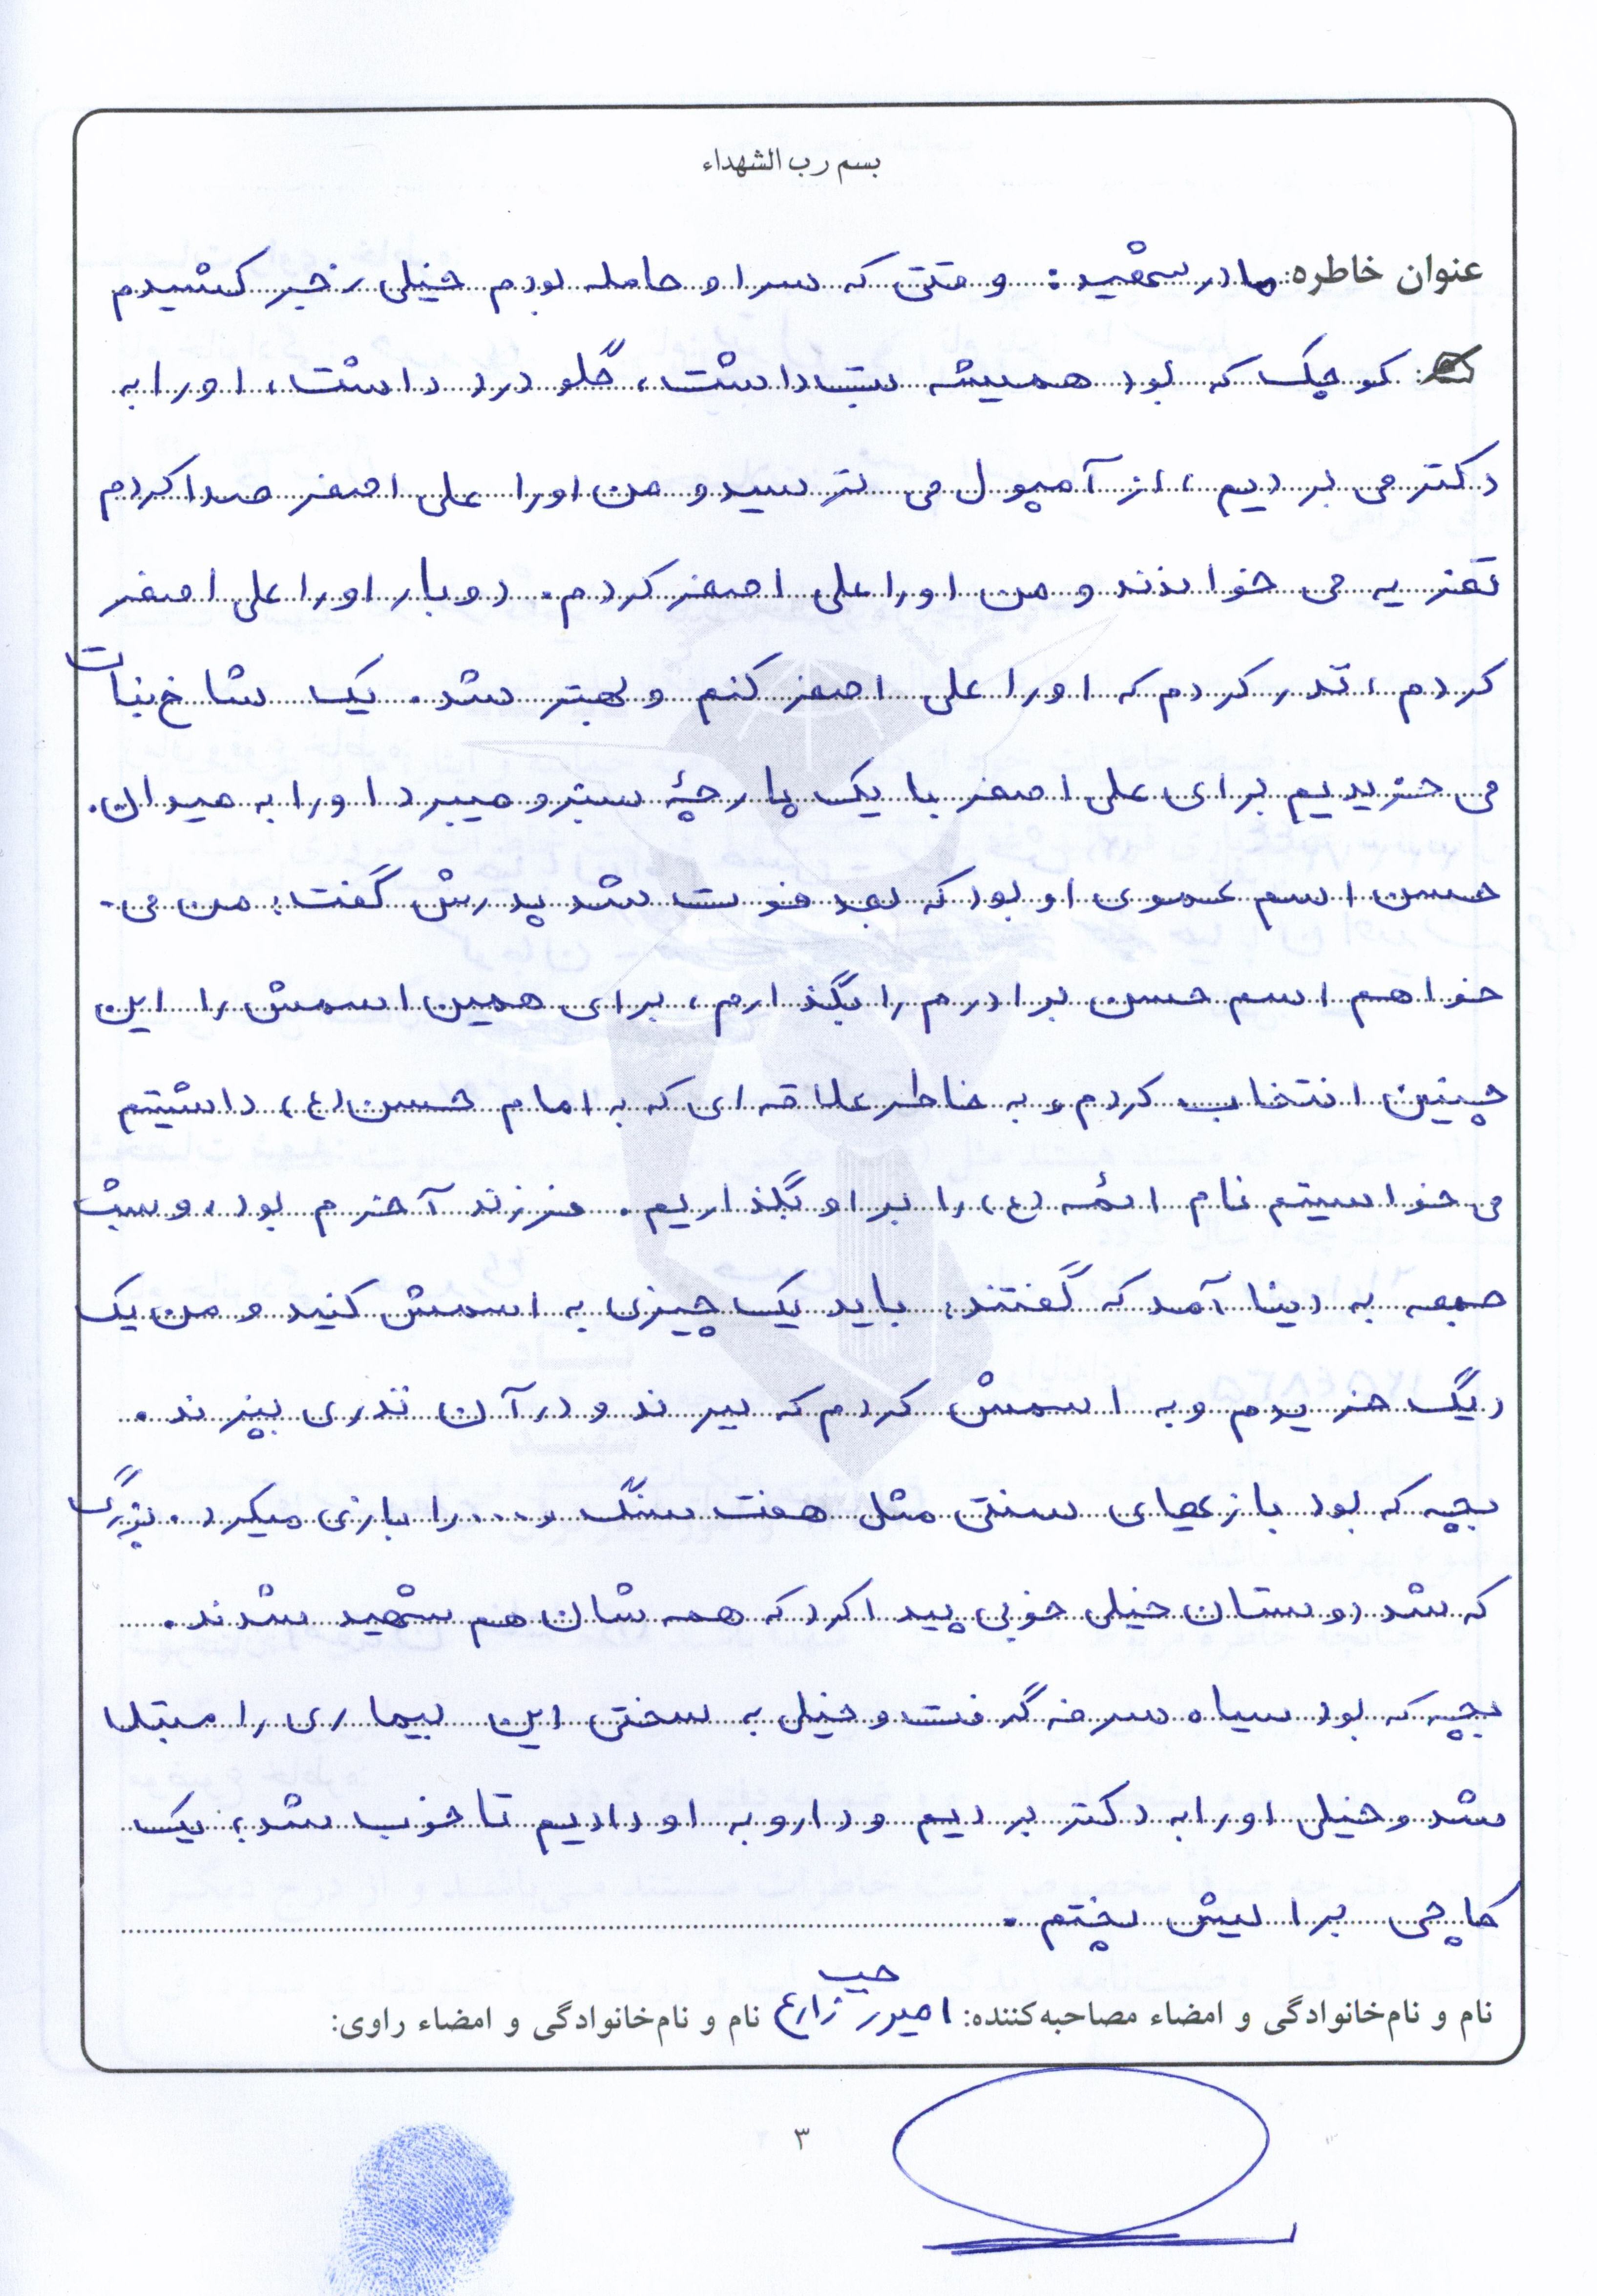 بسم رب الشهداء
عنوان خاطره: مادر شهید: وقتی که سر او حامله بودم خیلی زجر کشیدم
کوچک که بود همیشه تب داشت، گلو درد داشت، او را به
دکتر می بردیم، از آمپول می ترسید و من او را علی اصغر صدا کردم
تعزیه می خواندند و من او را علی اصغر کردم. دوبار او را علی اصغر
کردم، نذر کردم که او را علی اصغر کنم و بهتر شد. یک شاخ نبات
می خریدیم برای علی اصغر با یک پارچهٔ سبز و میبرد او را به میدان.
حسن اسم عموی او بود که بعد فوت شد پدرش گفت: من می-
خواهم اسم حسن برادرم را بگذارم، برای همین اسمش را این
چنین انتخاب کردم، به خاطر علاقه ای که به امام حسن (ع) داشتیم
می خواستیم نام ائمه (ع) را بر او بگذاریم. فرزند آخرم بود، و شب
جمعه به دنیا آمد که گفتند، باید یک چیزی به اسمش کنید و من یک
دیگ خریدم و به اسمش کردم که ببرند و در آن نذری بپزند.
بچه که بود بازیهای سنتی مثل هفت سنگ و... را بازی میکرد. بزرگ
که شد دوستان خیلی خوبی پیدا کرد که همه شان هم شهید شدند.
بچه که بود سیاه سرفه گرفت و خیلی به سختی این بیماری را مبتلا
شد و خیلی او را به دکتر بردیم و دارو به او دادیم تا خوب شد، یک
کاچی برایش پختم.
نام و نام‌خانوادگی و امضاء مصاحبه‌کننده: زارع نام و نام‌خانوادگی و امضاء راوی:
۳